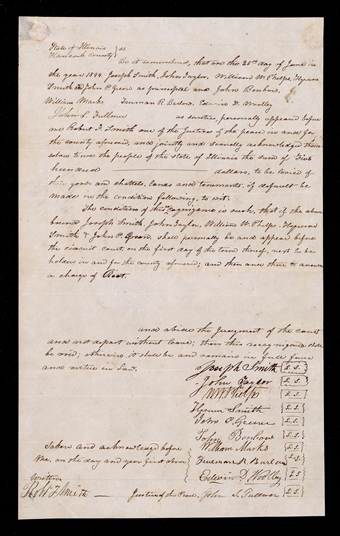 State of Illinois } ss
Hancock County
Be it remembered, that on the 25th day of June in
the year 1844. Joseph Smith, John Taylor, William W Phelps, Hyrum
Smith & John P. Green as principal and John Benbow, &
William Marks Freeman R. Barlow, Edwin D. Woolley
John S. Fullmer as sureties, personally appeared before
me Robert F. Smith one of the Justices of the peace in and for
the county aforesaid, and jointly and severally acknowledged them
selves to owe the people of the state of Illinois the sum of Five
hundred dollars, to be levied of
their goods and chattels, lands and tenements, if default be
made in the condition following, to wit.
The condition of this recognizance is such, that if the above
bound Joseph Smith, John Taylor, William W. Phelps, Hyrum
Smith & John P. Green shall personally be and appear before
the circuit court, on the first day of the term thereof, next to be
holden in and for the county aforesaid; and then and there to answer
a charge of Riot.
and abide the judgment of the court
and not depart without leave; then this recognizance shall
be void; otherwise, it shall be and remain in full force
and virtue in law.
Joseph Smith {L.S.}
John Taylor {L.S.}
W W Phelps {L.S.}
Hyrum Smith {L.S.}
John P. Greene {L.S.}
John Benbow {L.S.}
William Marks {L.S.}
Freeman R. Barlow {L.S.}
Edwin D. Woolley {L.S.}
John S. Fullmer {L.S.}
Taken and acknowledged before
me, on the day and year first above
written
Robt F. Smith Justice of the Peace